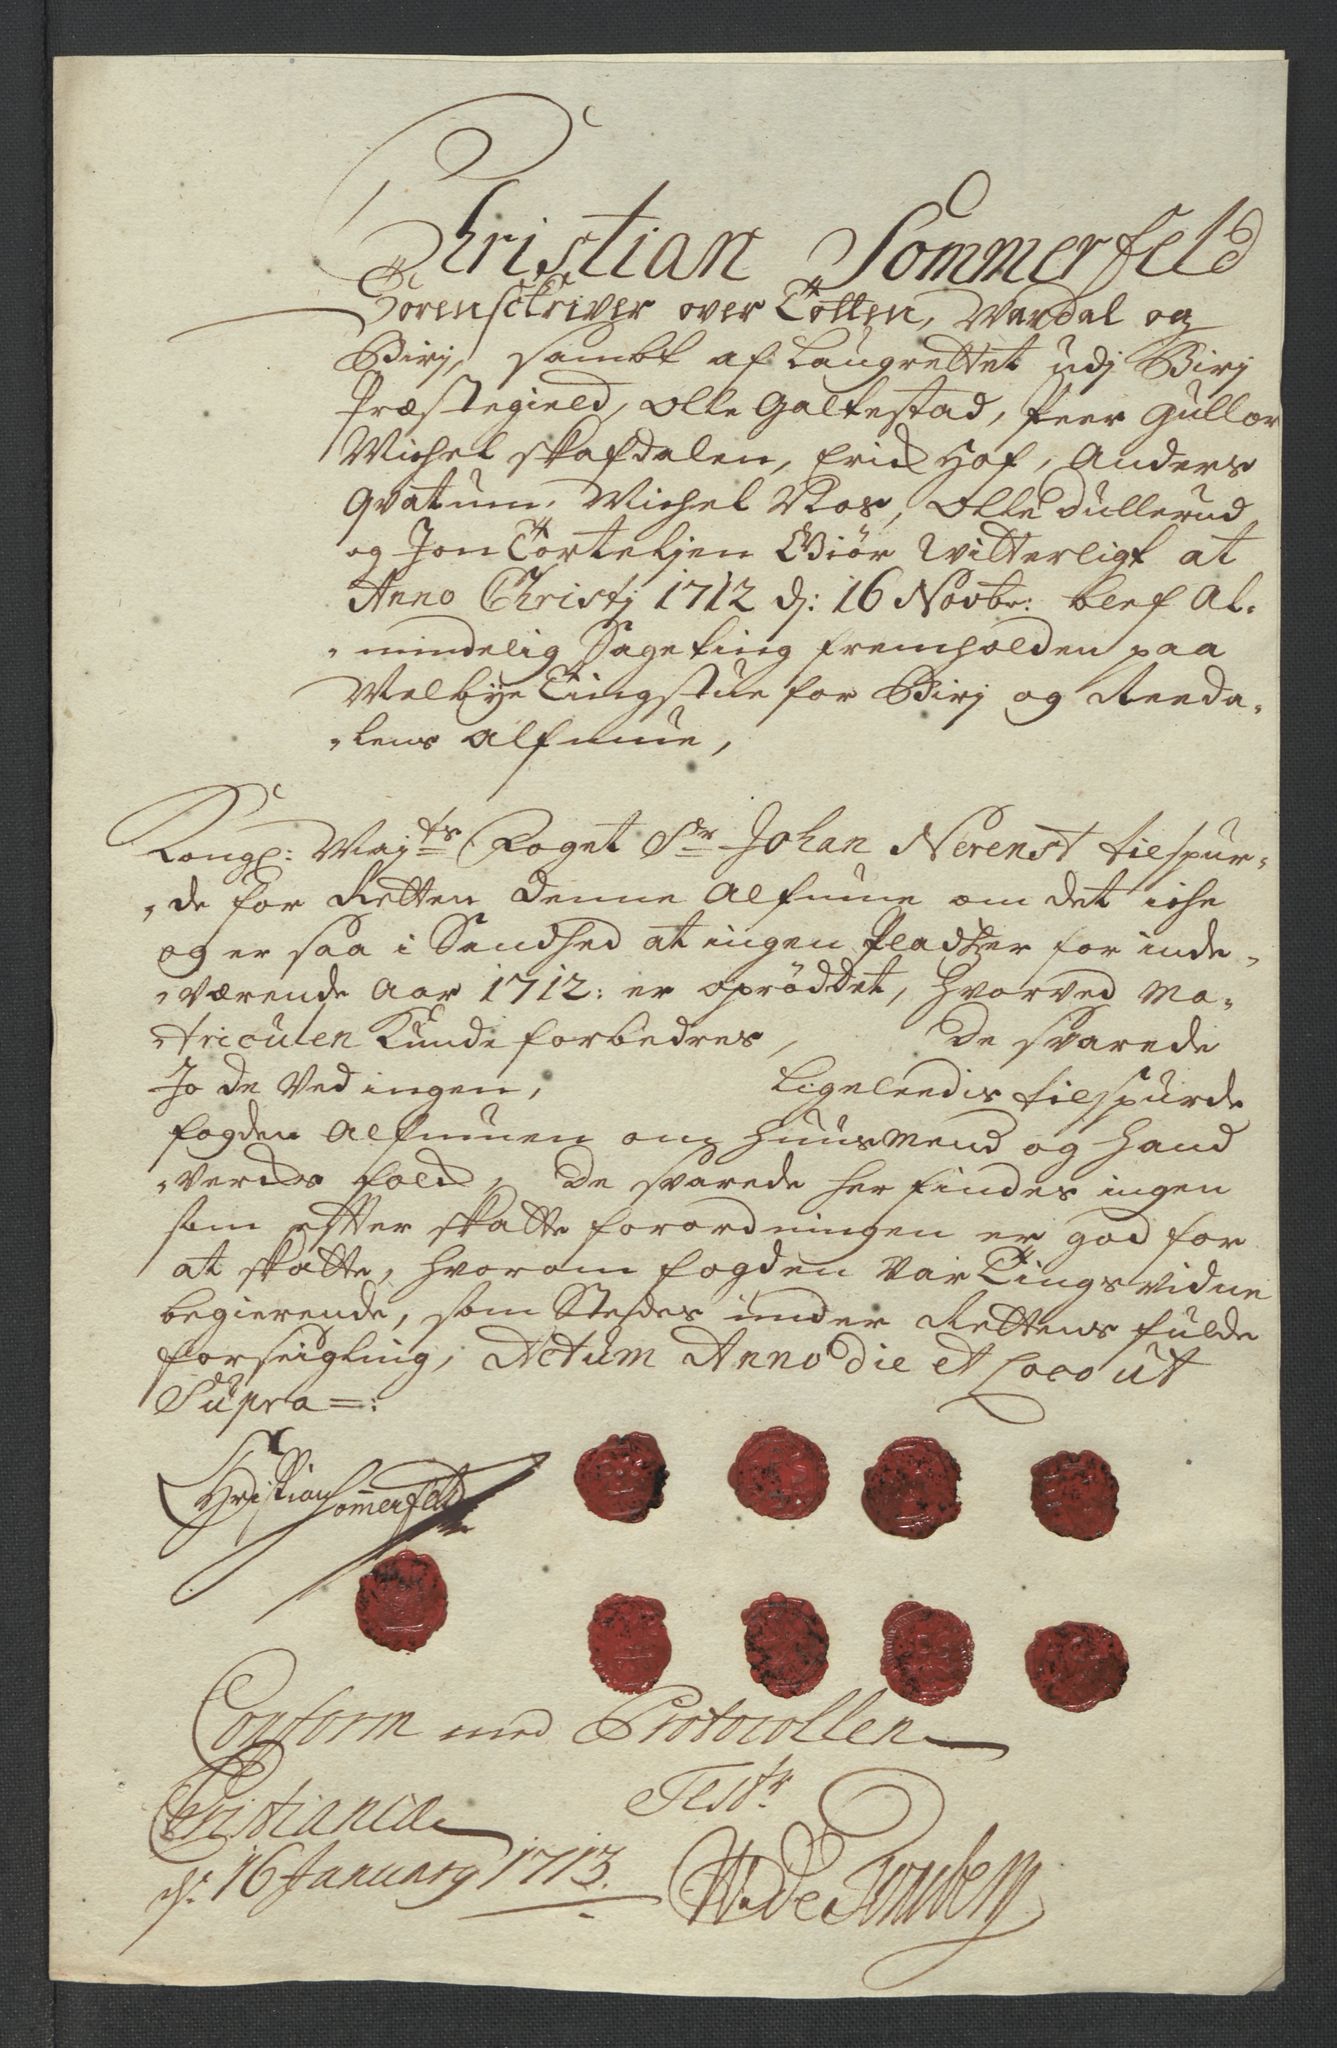 Christian Sommerfeld
Sorenschriver over Totten, Wardal og
Birj, sambt af Laugrettet udj Birj
Præstegield, Olle Galtestad, Peer Gullor
Michel Skafdalen, Erich Hof, Anders
Qvatum, Michel Roos, Olle Dullerud
og Jon Tortehjen Giør Witterligt at
Anno Christj 1712 dj: 16 Novbr: blef Al-
-mindelig Sageting fremholden paa
Melbye Tingstue for Birj og Reeda-
-lens Almue,
Kongl: Mayts Foget Sr Johan Nerenst tilspur-
-de for Retten denne Almue om det iche
og er saa i Sandhed at ingen Pladtzer for inde-
-værende Aar 1712: er oprøddet, hvorved Ma-
triculen Kunde forbedres, De svarede
Jo de Ved ingen, Ligeleedis tilspurde
fogden Almuen om Huusmend og Hand
-verchs folch, De svarede her findes ingen
som efter skatte forordningen er god for
at skatte, hvorom fogden Var Tings vidne
begierende, som Stædes under Rettens fulde
forseigling, Actum Anno die et Loco ut
Supra =:
Christian Sommerfeld
Conform med Protocollen
Test:r
Christiania
dj: 16 January 1713.
W de Tonsberg